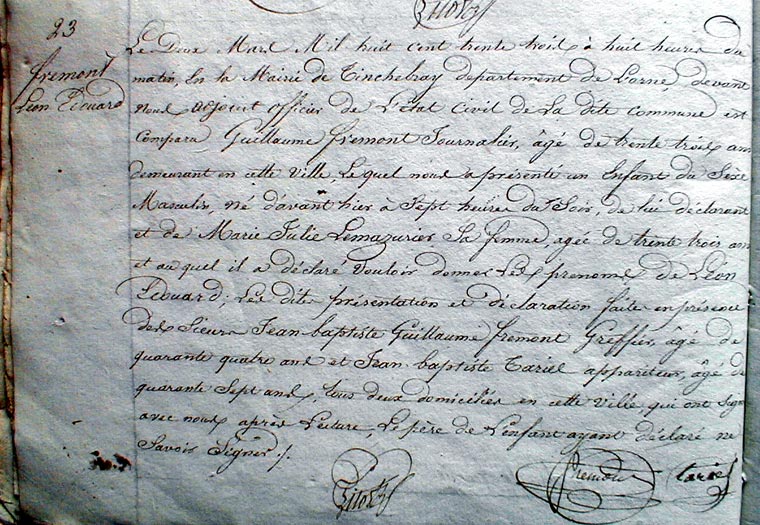 23
fremont
Leon Edouard
Le Deux Mars Mil huit cent trente trois à huit heures du
matin, En la Mairie de Tinchebray departement de L'orne, devant
nous adjoint officier de L'état Civil de La dite commune est
Comparu Guillaume fremont Journalier, âgé de trente trois ans
demeurant en cette Ville, Le quel nous a présenté un Enfant du Sexe
Masculin, né d'avant hier à Sept heures du Soir, de lui déclarant
et de Marie Julie Lemazurier Sa femme, agée de trente trois ans
et au quel il a déclaré Vouloir donner Les prenoms de Léon
Edouard; Les dites présentation et déclaration faite en présence
des Sieurs Jean baptiste Guillaume fremont Greffier, âgé de
quarante quatre ans et Jean baptiste Tariel appariteur, âgé de
quarante Sept ans, tous deux domiciliés en cette Ville, qui ont signé
avec nous après Lecture, Le père de L'enfant ayant déclaré ne
Savoir Signer ./.
fremont tariel